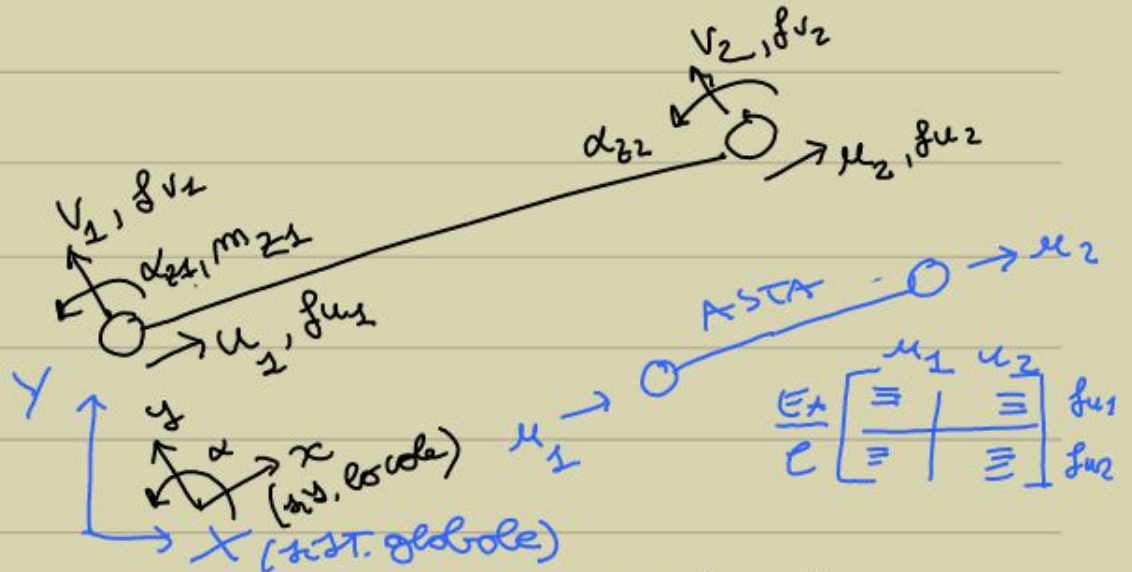 v₂, fv₂
αz2
u₂, fu₂
v₁, fv1
αz1, mz1
u₁, fu1
ASTA
u₂
u₁
u₁ u₂
EA
l
fu1
fu2
Y
y
α
x
(sis. locale)
X (sist. globale)